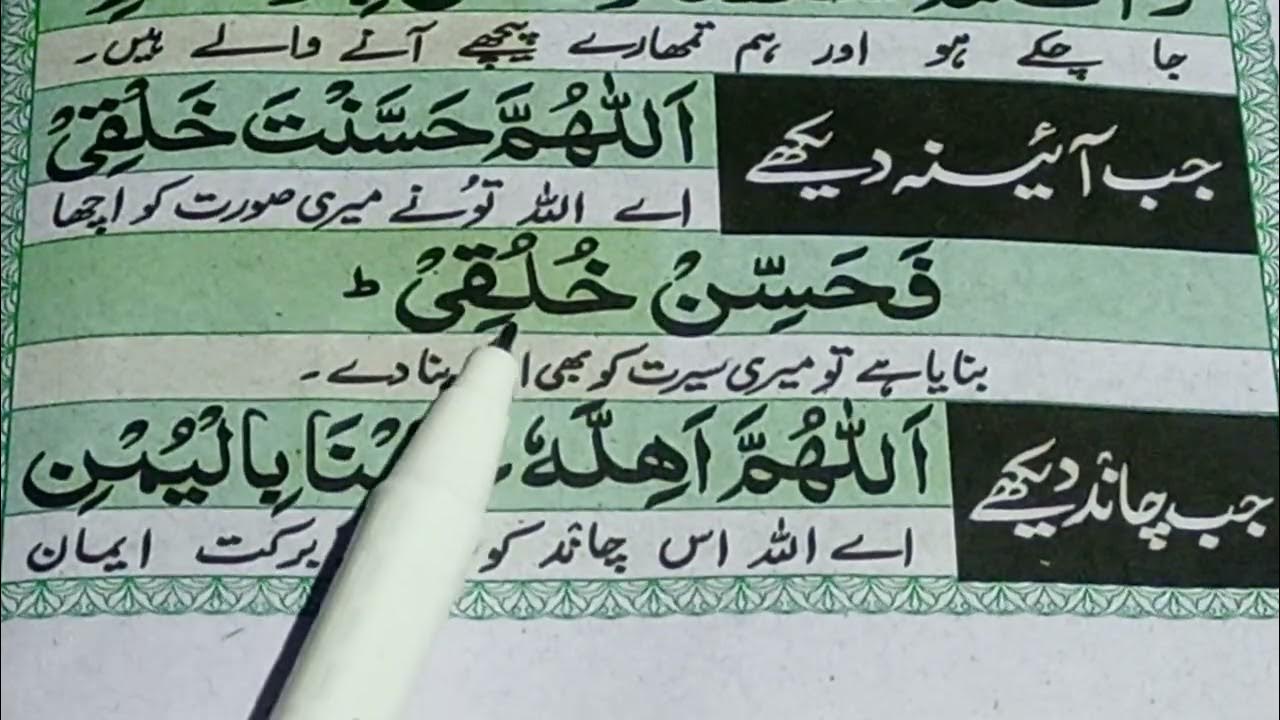 جا چکے ہو اور ہم تمھارے پیچھے آنے والے ہیں۔
جب آئینہ دیکھے
اَللّٰهُمَّ حَسَّنْتَ خَلْقِيْ
اے اللہ توُنے میری صورت کو اچھا
فَحَسِّنْ خُلُقِيْ ط
بنایا ہے تو میری سیرت کو بھی بنا دے۔
جب چاند دیکھے
اَللّٰهُمَّ اَهِلَّهٗ بِالْيُمْنِ
اے اللہ اس چاند کو برکت ایمان